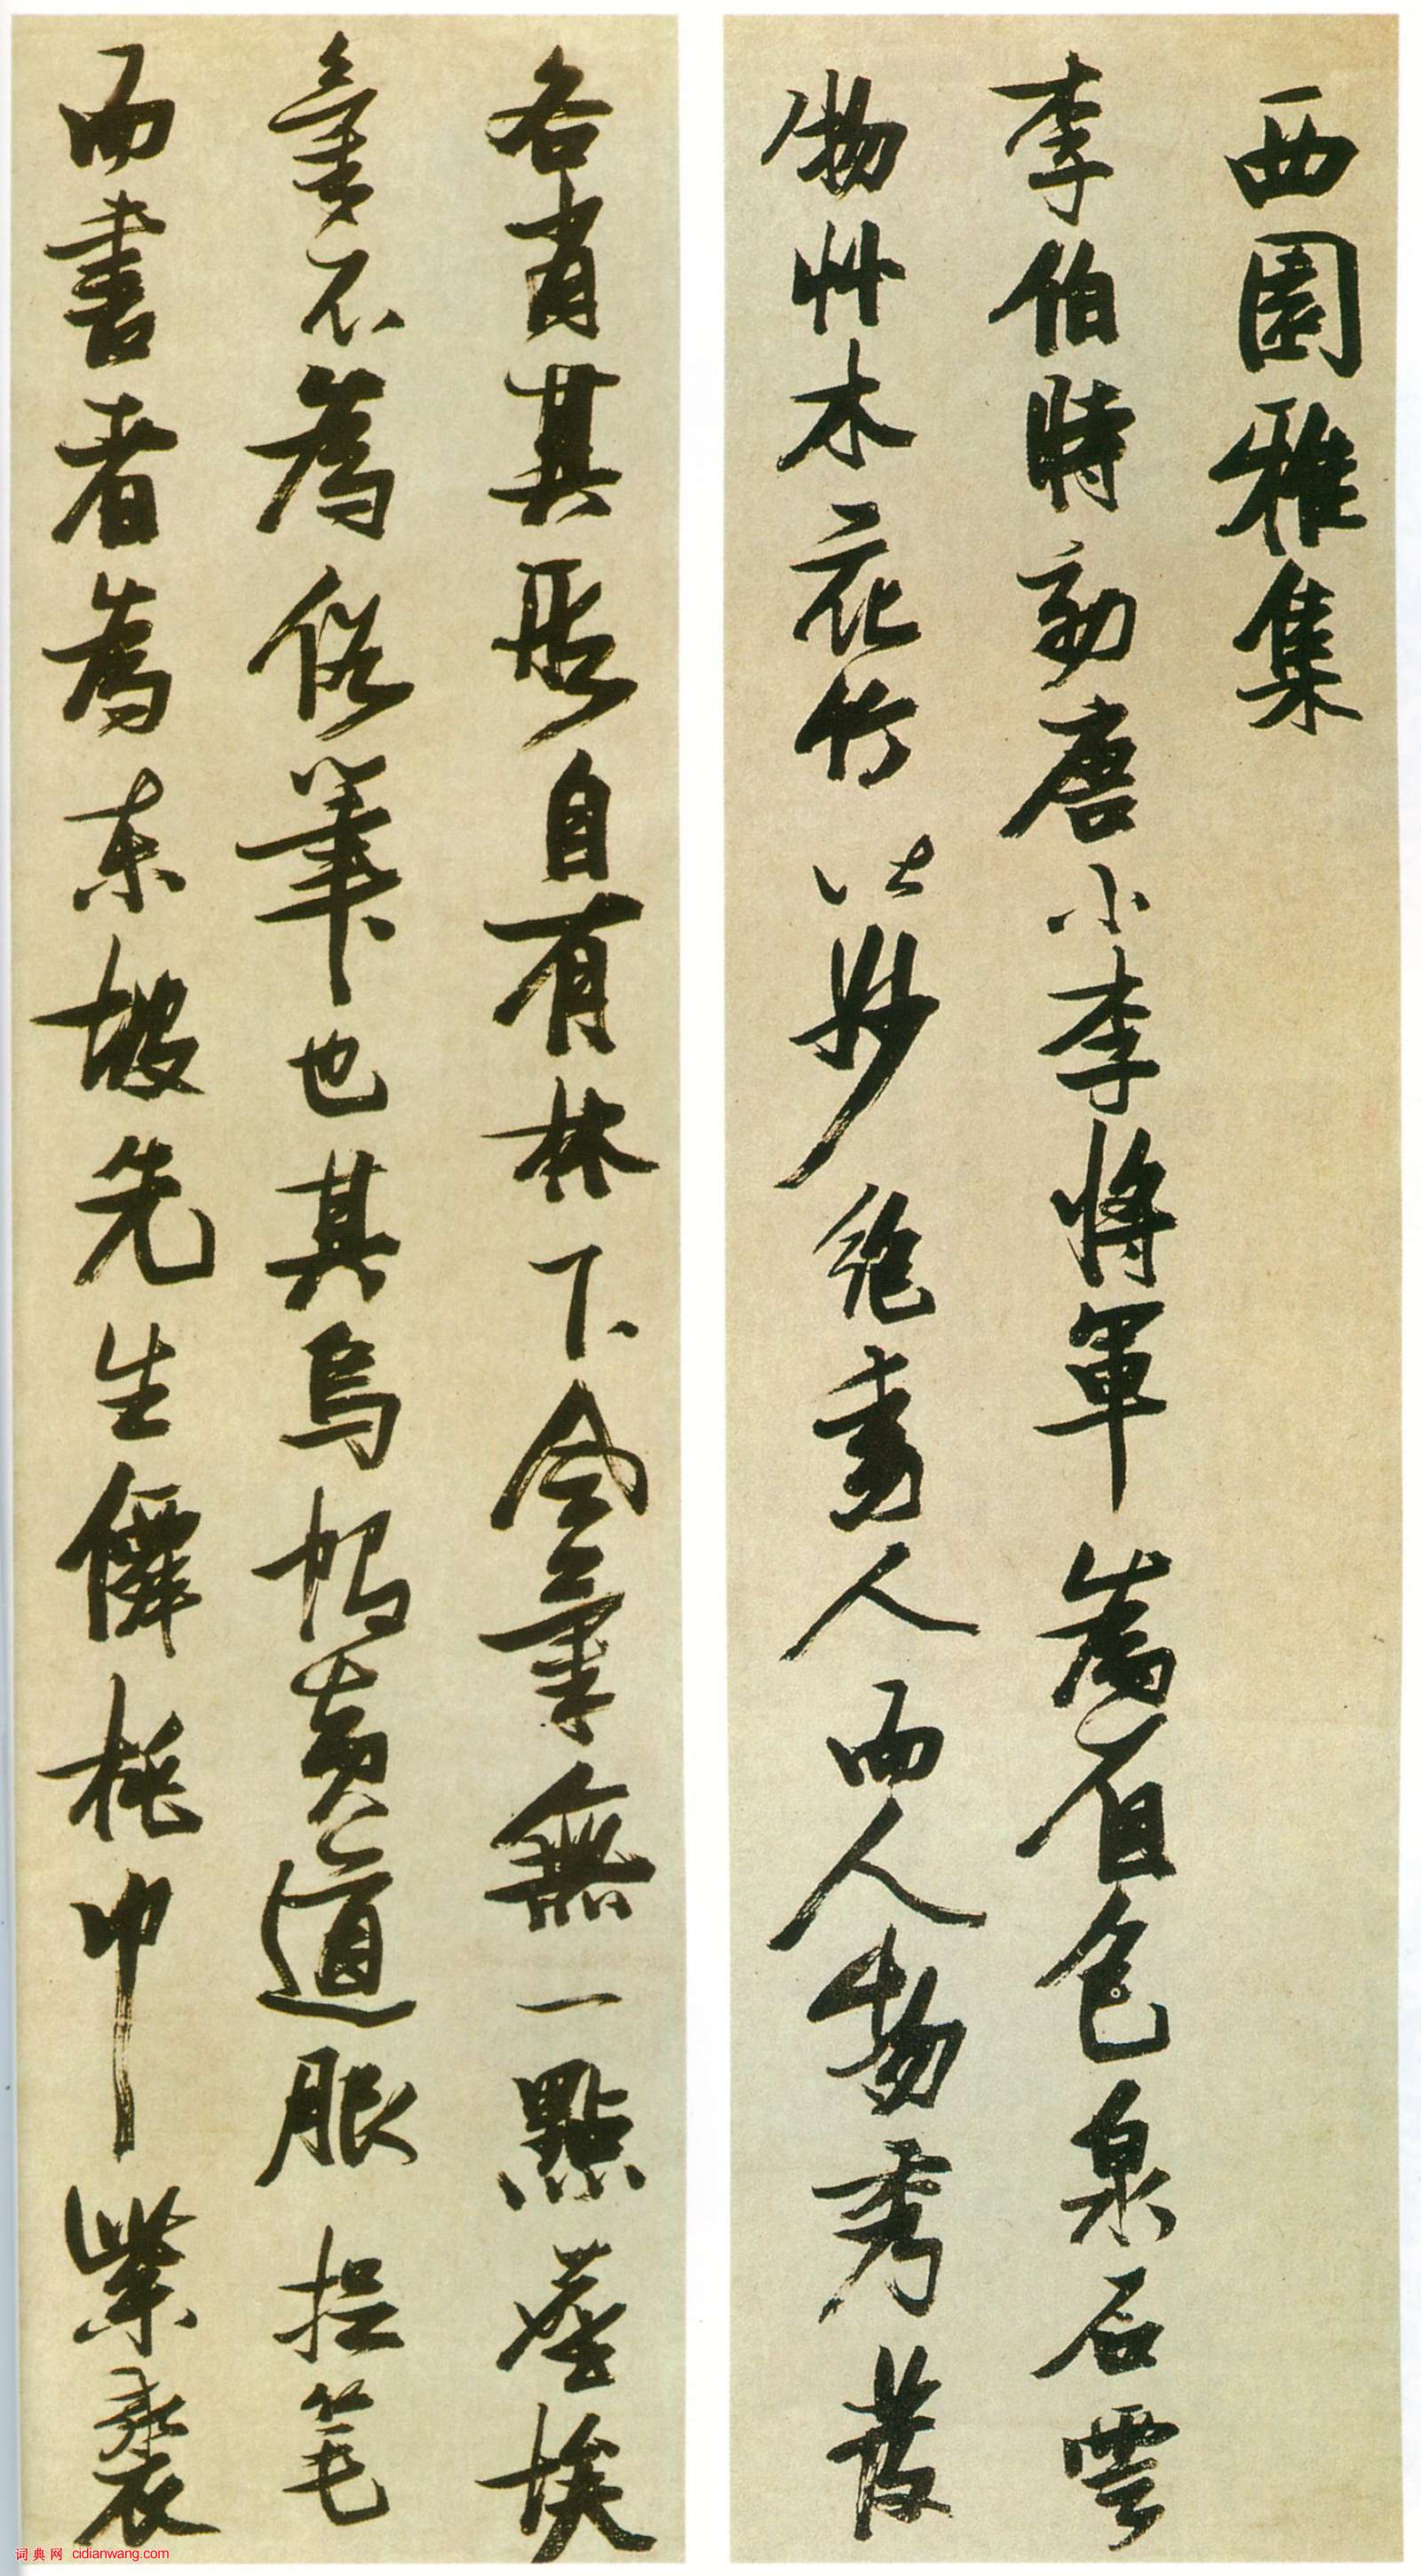 西園雅集
李伯時効唐小李將軍為着色泉石雲
物艸木花竹皆妙絶動人而人物秀發
各肖其形自有林下無一點塵埃
不為俗筆也其烏帽黃道服捉笔
而書者為東坡先生僊桃巾紫裘
词典网 cidianwang.com